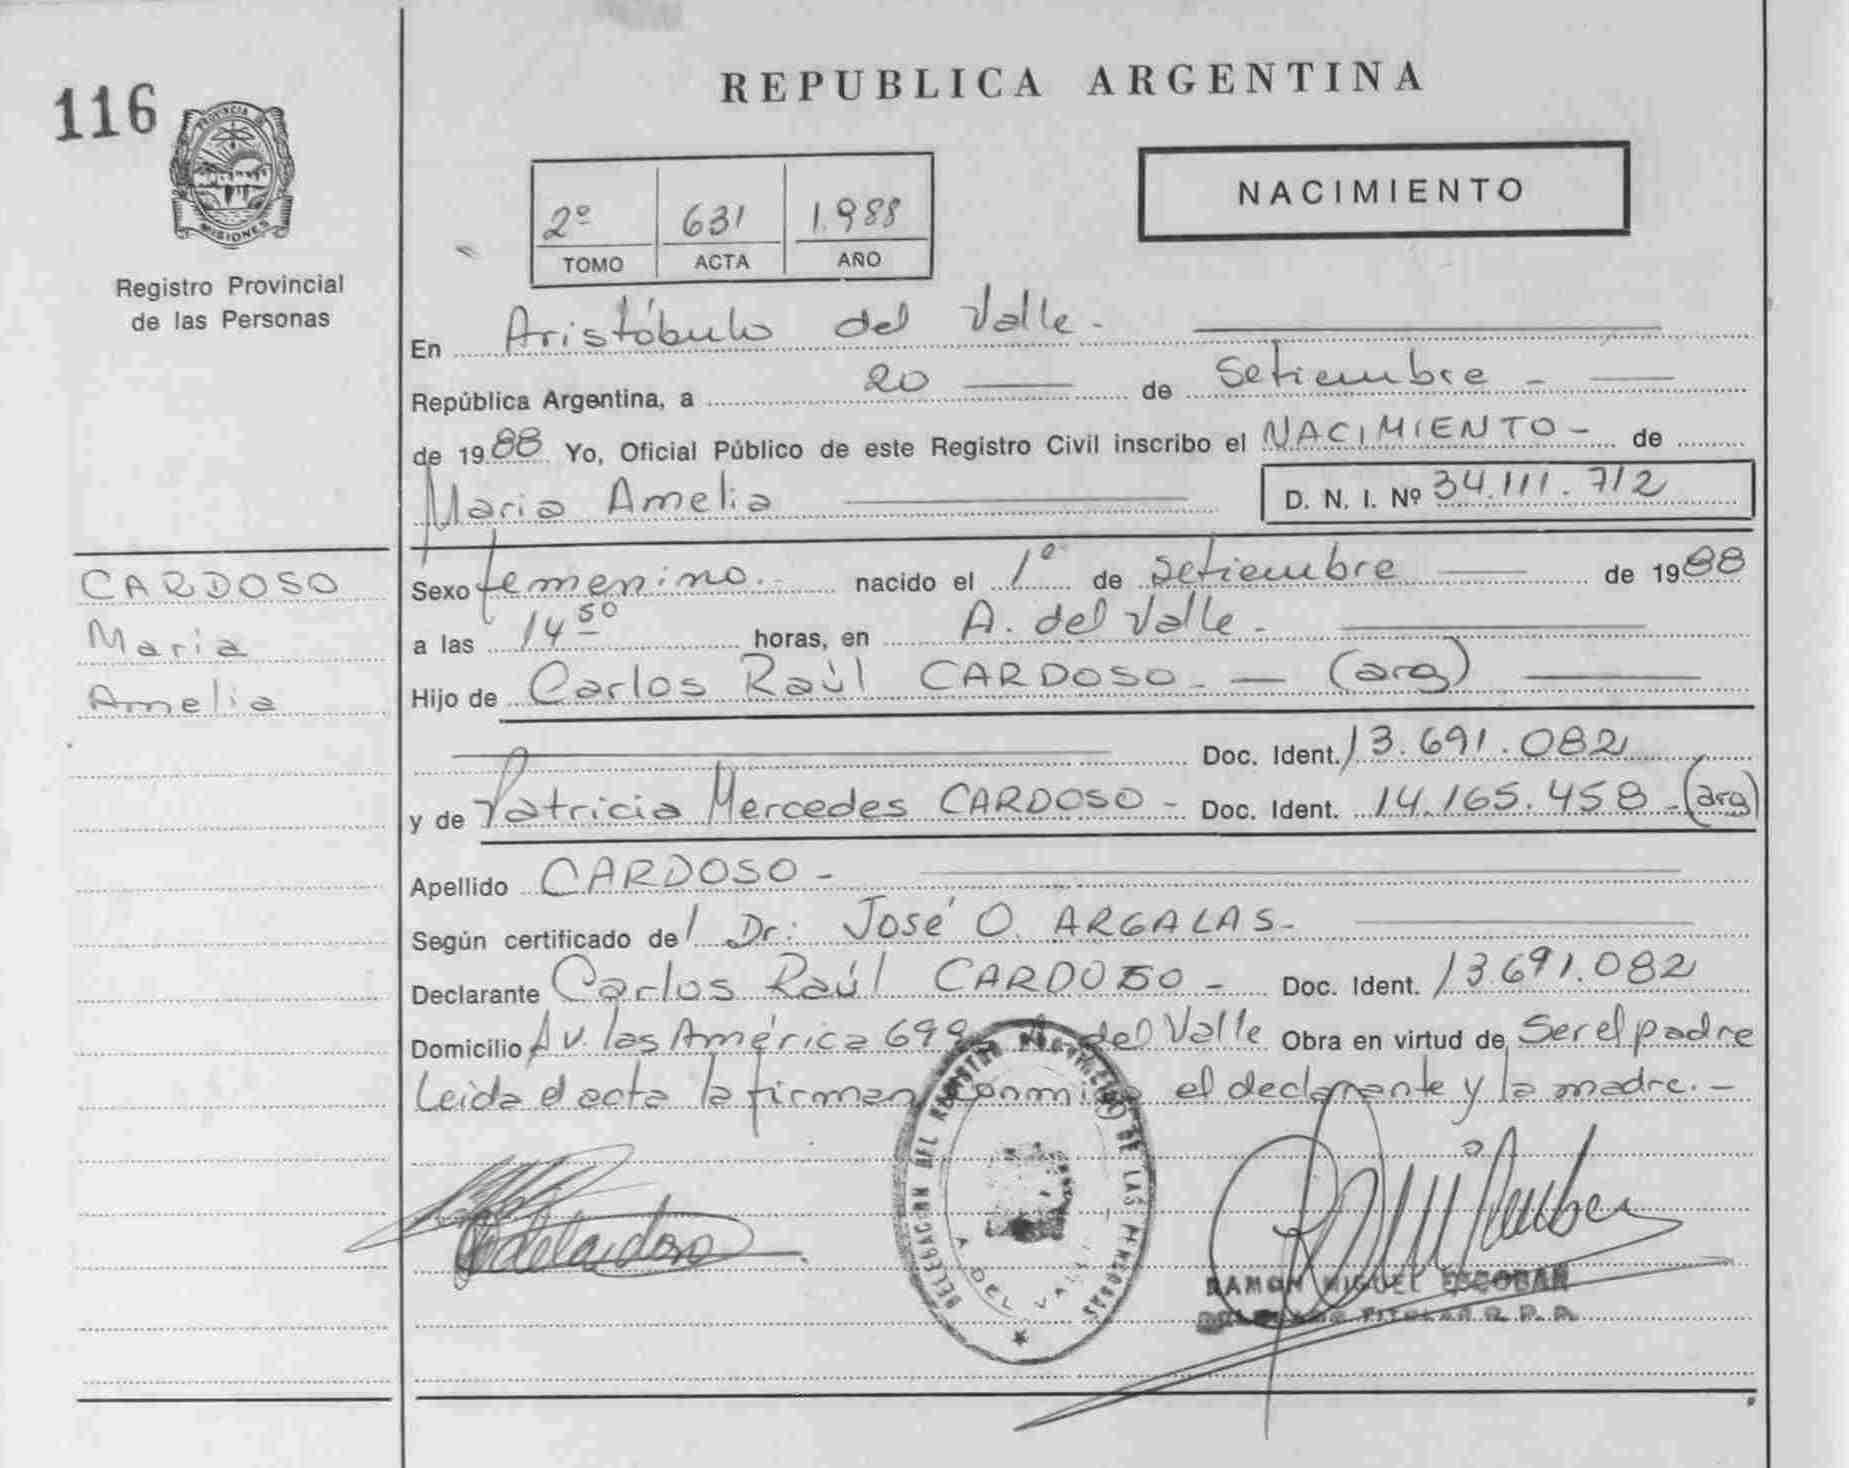 116
REPUBLICA ARGENTINA
PROVINCIA DE
MISIONES
NACIMIENTO
2º 631 1.988
TOMO ACTA AÑO
Registro Provincial
de las Personas
En Aristóbulo del Valle.-
República Argentina, a 20 de Setiembre -
de 1988 Yo, Oficial Público de este Registro Civil inscribo el NACIMIENTO- de
Maria Amelia D. N. I. Nº 34.111.712
CARDOSO
Maria
Amelia
Sexo femenino.- nacido el 1º de Setiembre de 1988
a las 14 50 horas, en A. del Valle.-
Hijo de Carlos Raúl CARDOSO.- (arg)
Doc. Ident. 13.691.082
y de Patricia Mercedes CARDOSO- Doc. Ident. 14.165.458-(arg)
Apellido CARDOSO-
Según certificado del Dr: José O. ARGALAS-
Declarante Carlos Raúl CARDOSO- Doc. Ident. 13.691.082
Domicilio Av. las América 699 A del Valle Obra en virtud de Ser el padre
Leida el acta la firman conmigo el declarante y la madre.-
DELEGACION DEL REGISTRO PROVINCIAL DE LAS PERSONAS
A. DEL VALLE
RAMON MIGUEL ESCOBAR
DELEGADO TITULAR R. P. P.